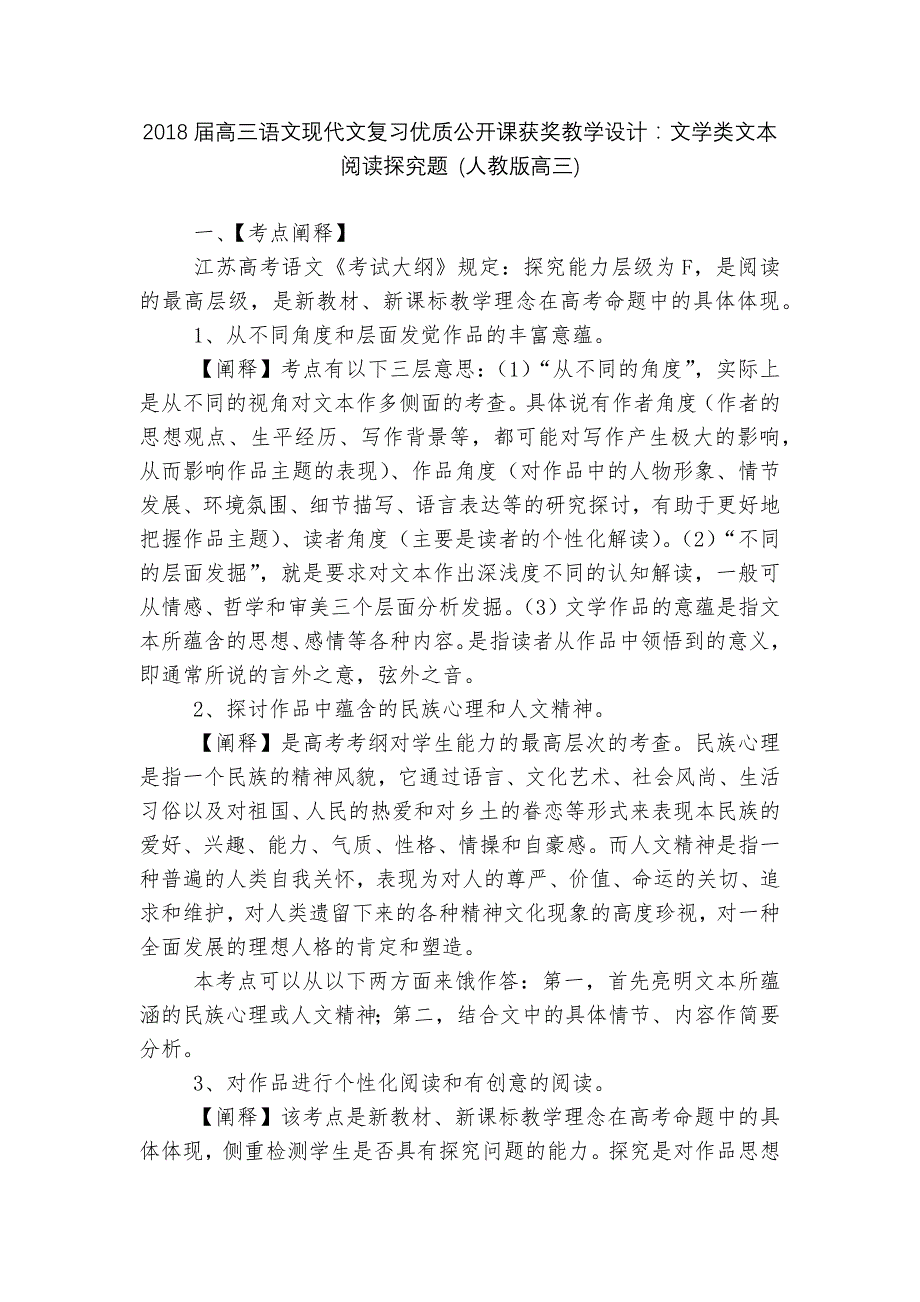 2018 届高三语文现代文复习优质公开课获奖教学设计：文学类文本
阅读探究题 (人教版高三)
一、【考点阐释】
江苏高考语文《考试大纲》规定：探究能力层级为 F，是阅读
的最高层级，是新教材、新课标教学理念在高考命题中的具体体现。
1、从不同角度和层面发觉作品的丰富意蕴。
【阐释】考点有以下三层意思：（1）“从不同的角度”，实际上
是从不同的视角对文本作多侧面的考查。具体说有作者角度（作者的
思想观点、生平经历、写作背景等，都可能对写作产生极大的影响，
从而影响作品主题的表现）、作品角度（对作品中的人物形象、情节
发展、环境氛围、细节描写、语言表达等的研究探讨，有助于更好地
把握作品主题）、读者角度（主要是读者的个性化解读）。（2）“不同
的层面发掘”，就是要求对文本作出深浅度不同的认知解读，一般可
从情感、哲学和审美三个层面分析发掘。（3）文学作品的意蕴是指文
本所蕴含的思想、感情等各种内容。是指读者从作品中领悟到的意义，
即通常所说的言外之意，弦外之音。
2、探讨作品中蕴含的民族心理和人文精神。
【阐释】是高考考纲对学生能力的最高层次的考查。民族心理
是指一个民族的精神风貌，它通过语言、文化艺术、社会风尚、生活
习俗以及对祖国、人民的热爱和对乡土的眷恋等形式来表现本民族的
爱好、兴趣、能力、气质、性格、情操和自豪感。而人文精神是指一
种普遍的人类自我关怀，表现为对人的尊严、价值、命运的关切、追
求和维护，对人类遗留下来的各种精神文化现象的高度珍视，对一种
全面发展的理想人格的肯定和塑造。
本考点可以从以下两方面来饿作答：第一，首先亮明文本所蕴
涵的民族心理或人文精神；第二，结合文中的具体情节、内容作简要
分析。
3、对作品进行个性化阅读和有创意的阅读。
【阐释】该考点是新教材、新课标教学理念在高考命题中的具
体体现，侧重检测学生是否具有探究问题的能力。探究是对作品思想